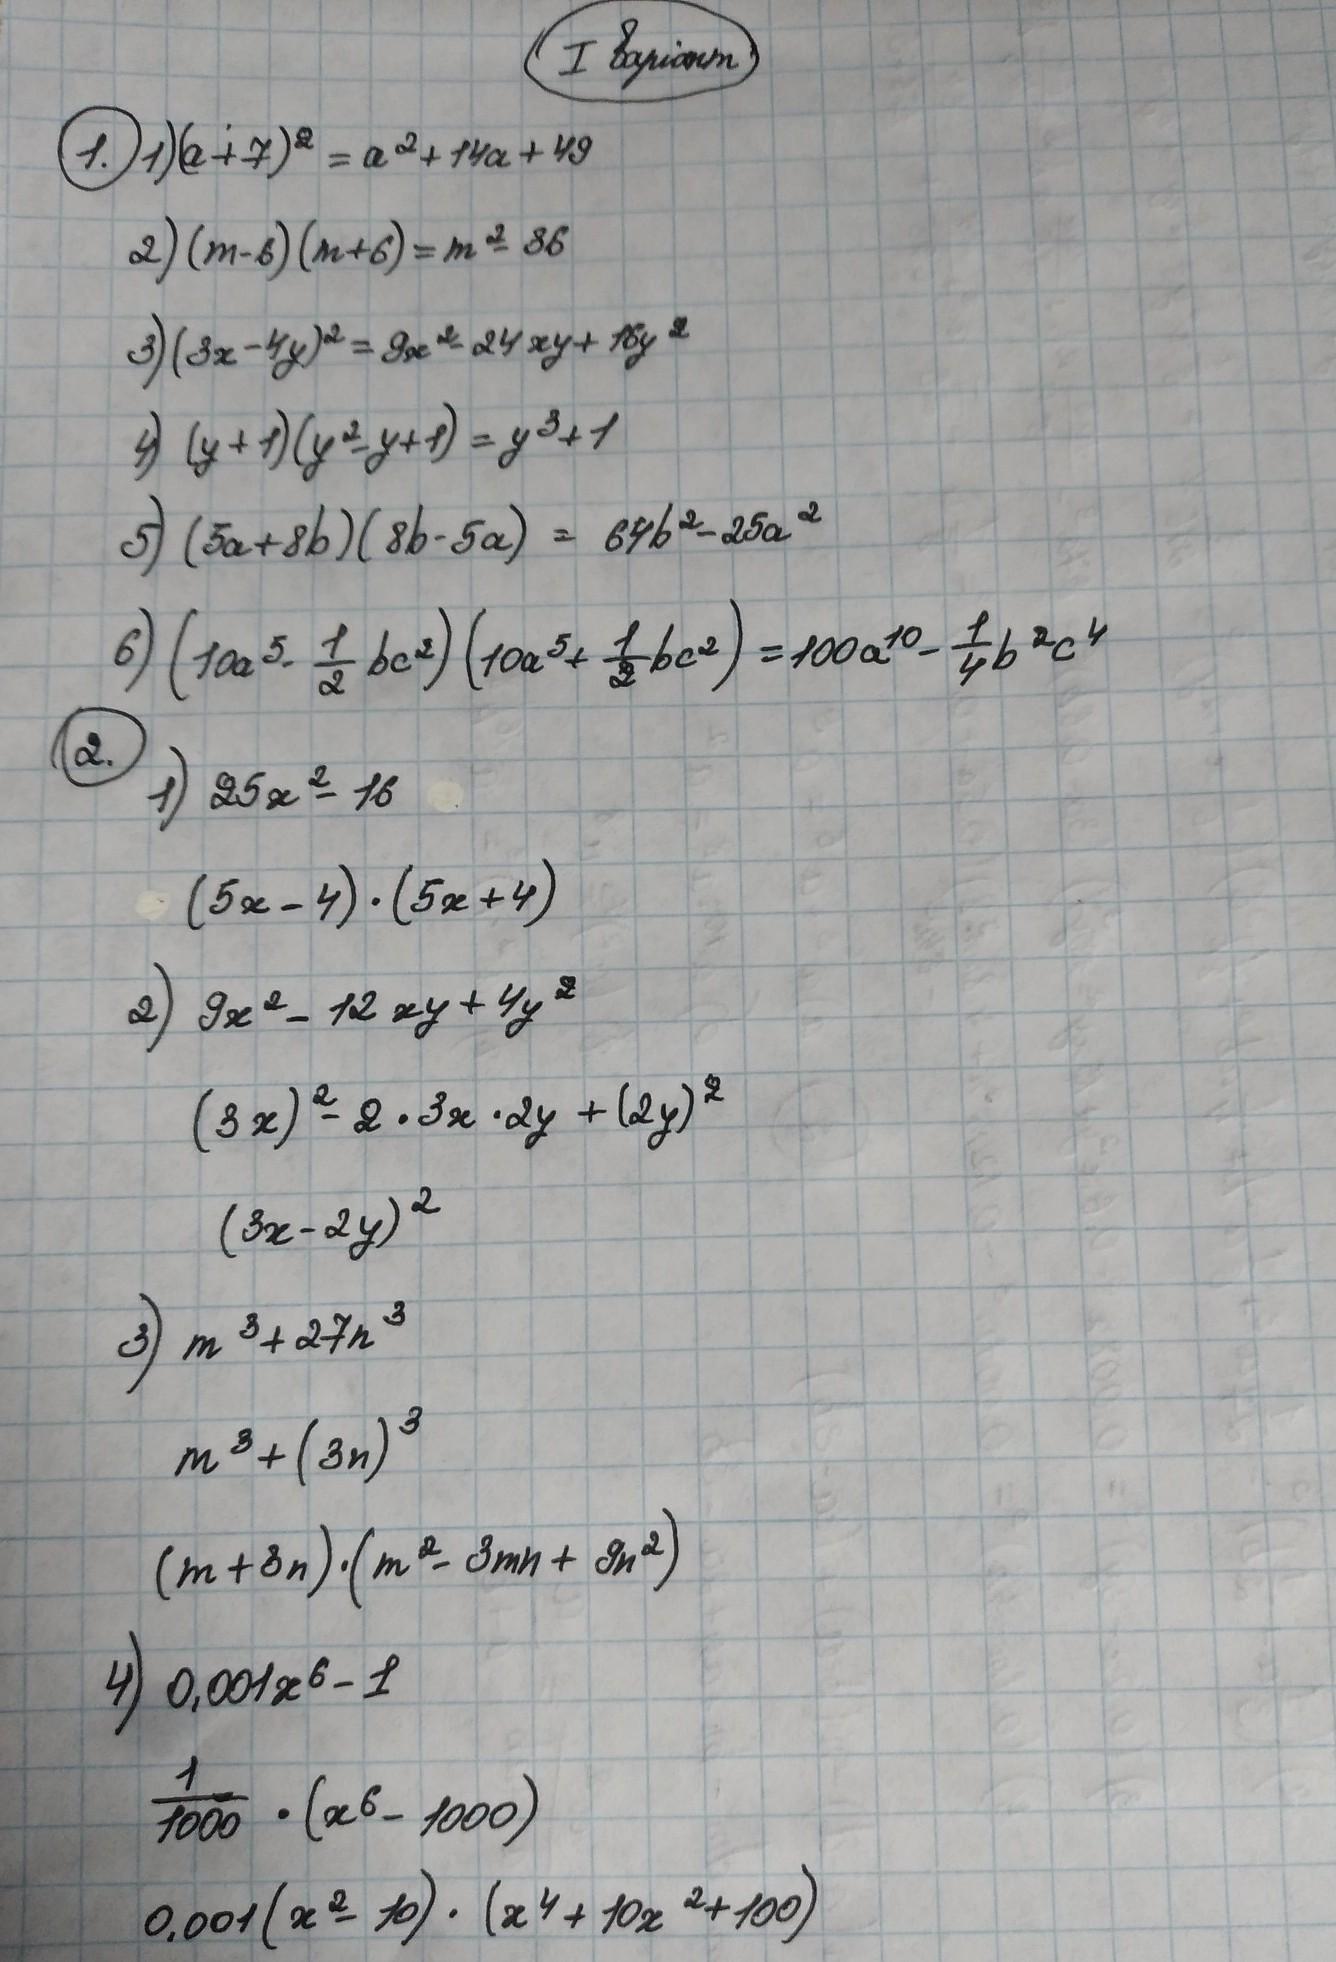 I варіант
1. 1) (a+7)² = a² + 14a + 49
2) (m-6)(m+6) = m² - 36
3) (3x-4y)² = 9x² - 24xy + 16y²
4) (y+1)(y²-y+1) = y³ + 1
5) (5a+8b)(8b-5a) = 64b² - 25a²
6) (10a⁵ - 1/2 bc²)(10a⁵ + 1/2 bc²) = 100a¹⁰ - 1/4 b²c⁴
2.
1) 25x² - 16
(5x-4)·(5x+4)
2) 9x² - 12xy + 4y²
(3x)² - 2·3x·2y + (2y)²
(3x-2y)²
3) m³ + 27n³
m³ + (3n)³
(m+3n)·(m² - 3mn + 9n²)
4) 0,001x⁶ - 1
1/1000 · (x⁶ - 1000)
0,001(x² - 10)·(x⁴ + 10x² + 100)